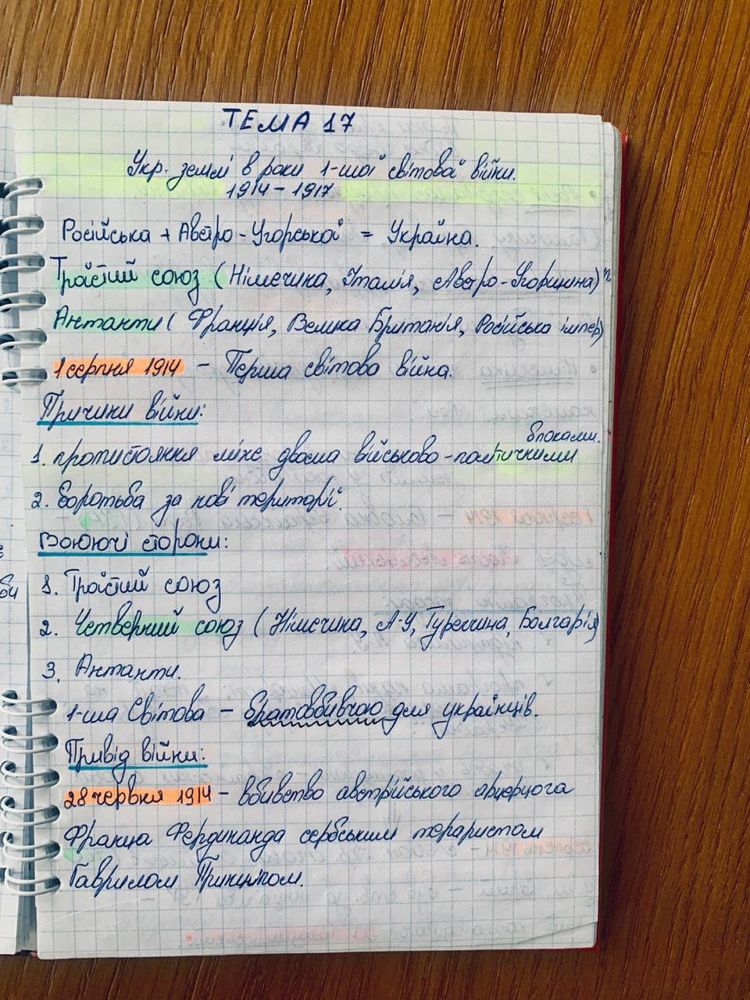 ТЕМА 17
Укр. землі в роки 1-шої світової війни.
1914 - 1917
Російська + Австро-Угорської = Україна.
Троїстий союз (Німеччина, Італія, Австро-Угорщина)
Антанти (Франція, Велика Британія, Російська імпер)
1 серпня 1914 - Перша світова війна.
Причини війни:
блоками.
1. протистояння між двома військово-політичними
2. боротьба за нові території.
Воюючі сторони:
1. Троїстий союз
2. Четверний союз (Німеччина, А-У, Туреччина, Болгарія)
3. Антанти.
1-ша Світова - братовбивчою для українців.
Привід війни:
28 червня 1914 - вбивство австрійського ерцерцога
Франца Фердинанда сербським терористом
Гаврилом Принципом.